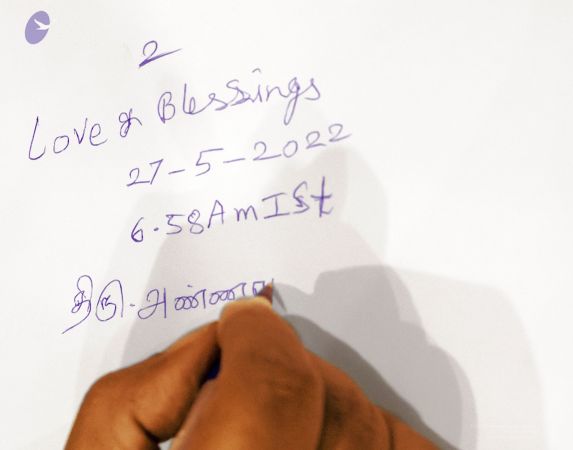 2
Love & Blessings
27-5-2022
6.58AmISt
திரு.அண்ணா